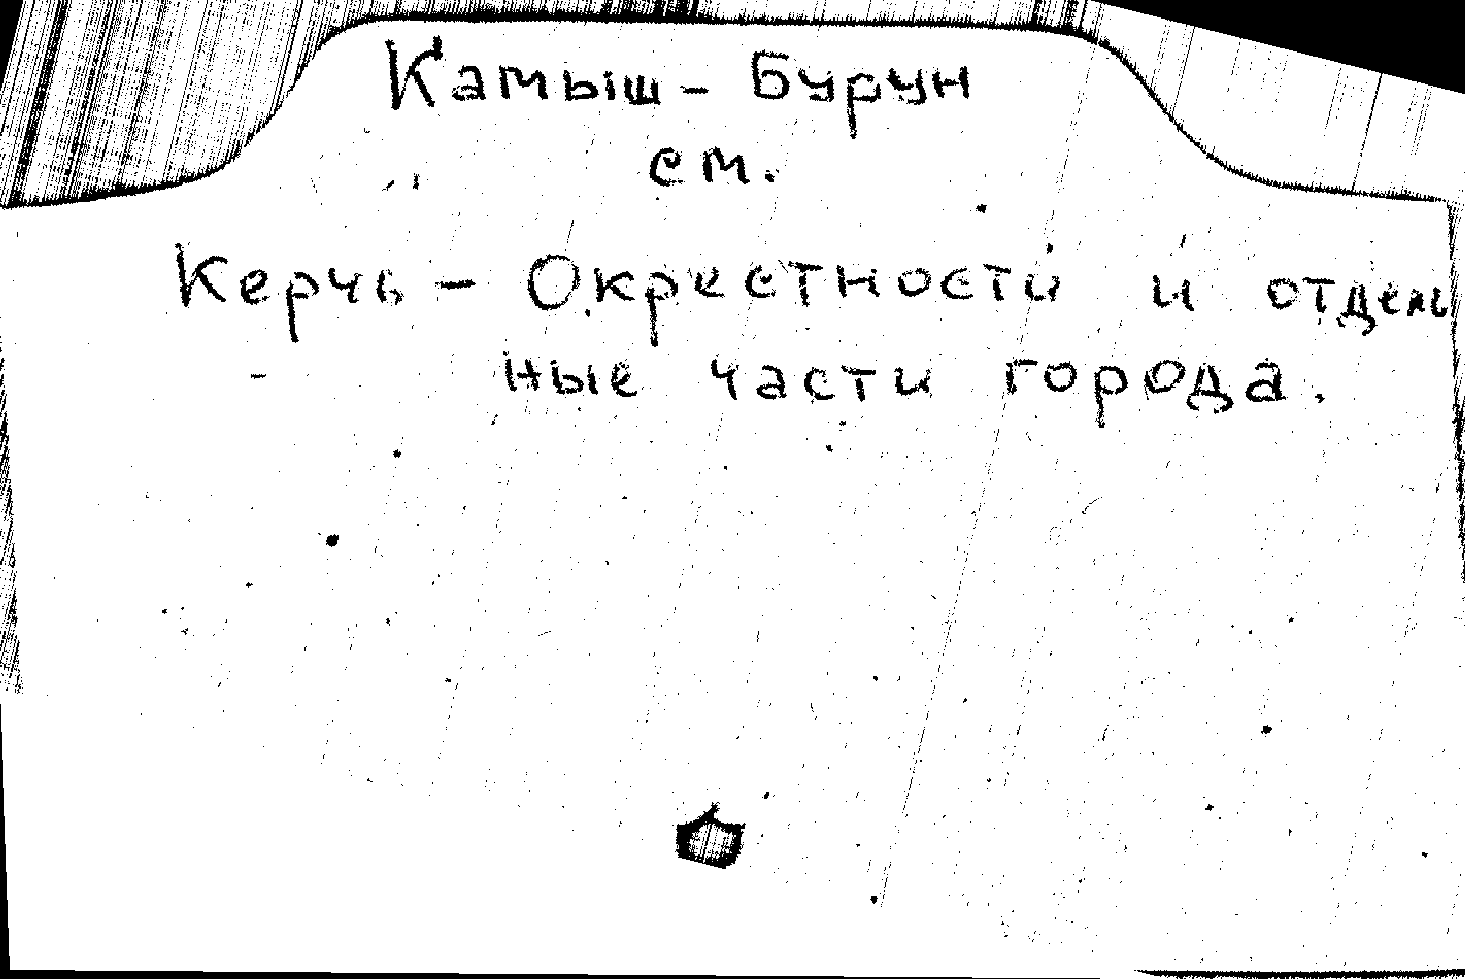 Камыш - Бурун
см.
Керчь - Окрестности и отдель
- ные части города.